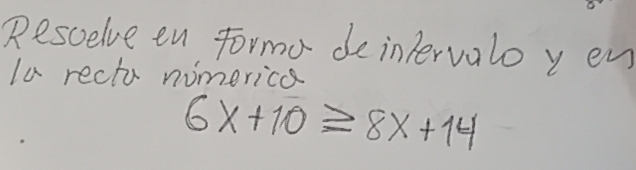 Resuelve en forma de intervalo y en
la recta númerica
6X+10 ≥ 8X+14